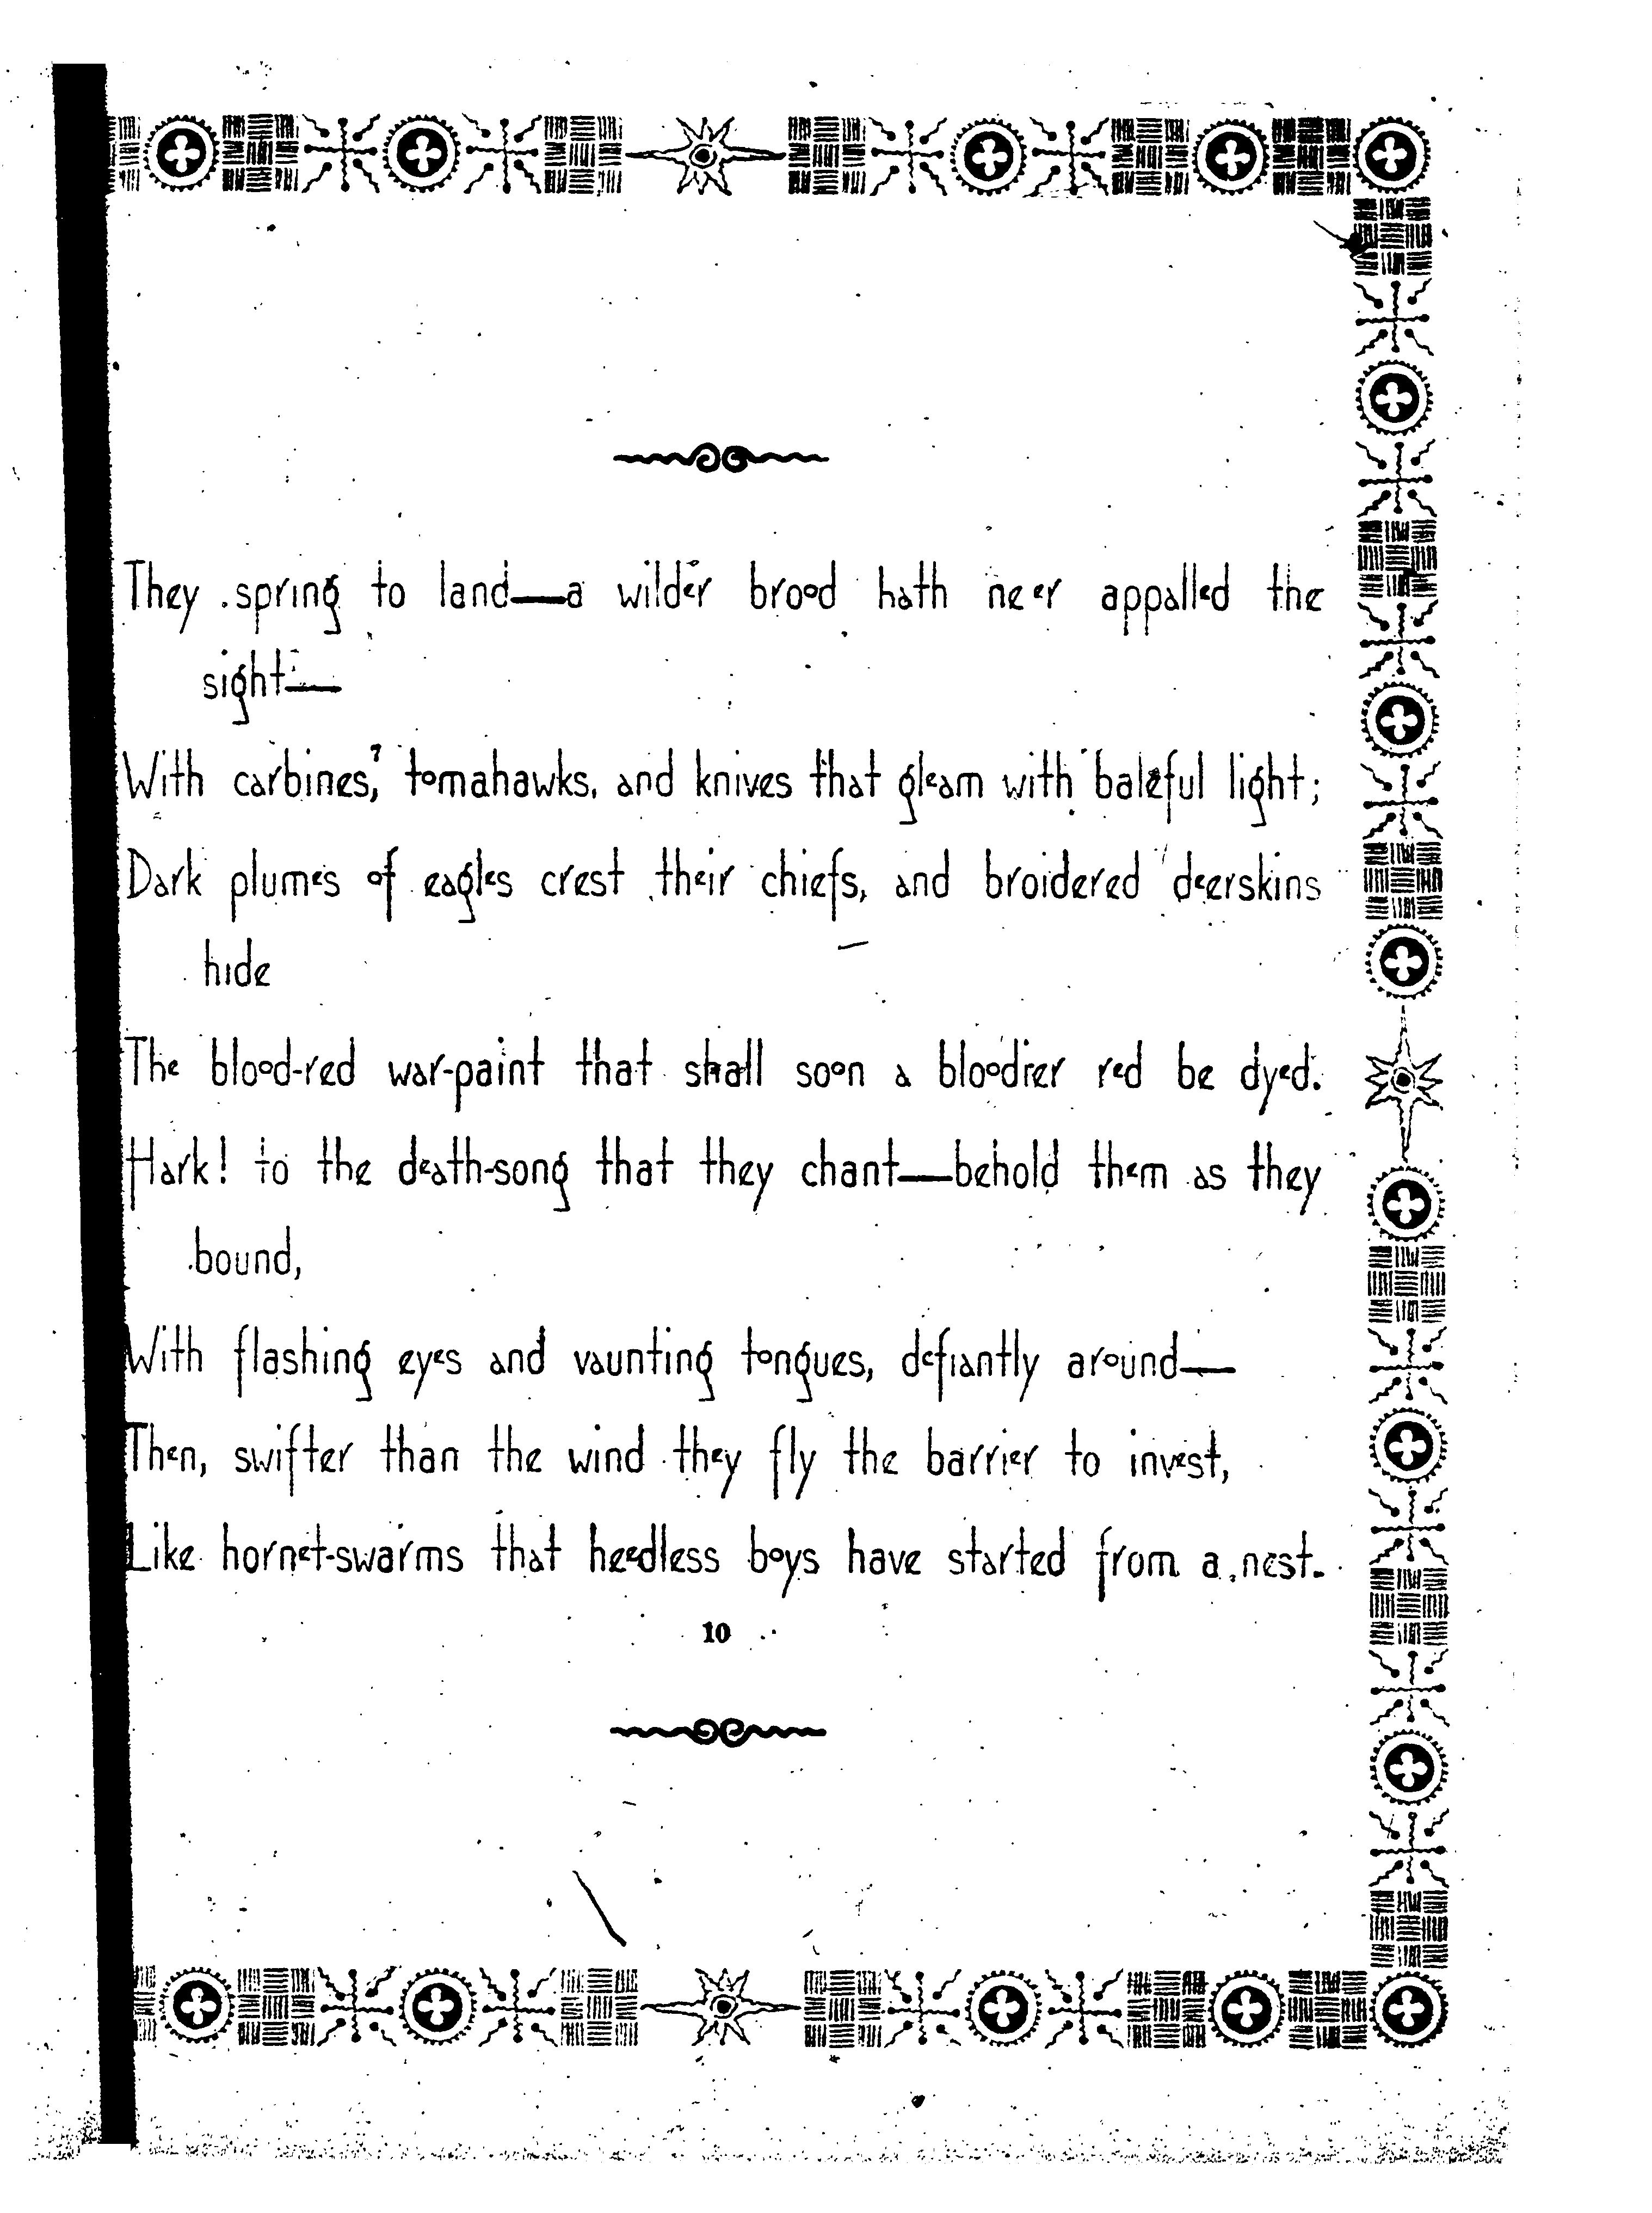 They spring to land—a wilder brood hath neer appalled the
sight—
With carbines, tomahawks, and knives that gleam with baleful light;
Dark plumes of eagles crest their chiefs, and broidered deerskins
hide
The blood-red war-paint that shall soon a bloodier red be dyed.
Hark! to the death-song that they chant—behold them as they
bound,
With flashing eyes and vaunting tongues, defiantly around—
Then, swifter than the wind they fly the barrier to invest,
Like hornet-swarms that heedless boys have started from a nest.
10